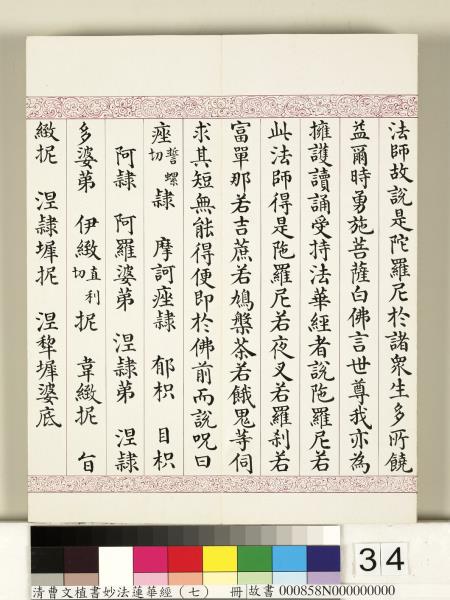 法師故說是陀羅尼於諸衆生多所饒
益爾時勇施菩薩白佛言世尊我亦為
擁護讀誦受持法華經者說陁羅尼若
此法師得是陁羅尼若夜叉若羅刹若
富單那若吉蔗若鳩槃荼若餓鬼等伺
求其短無能得便即於佛前而說呪曰
痤誓螺切隷 摩訶痤隷 郁枳 目枳
阿隷 阿羅婆第 涅隷第 涅隷
多婆第 伊緻直利切抳 韋緻抳 旨
緻抳 涅隷墀抳 涅犂墀婆底
34
清曹文植書妙法蓮華經（七） 冊 故書 000858N000000000